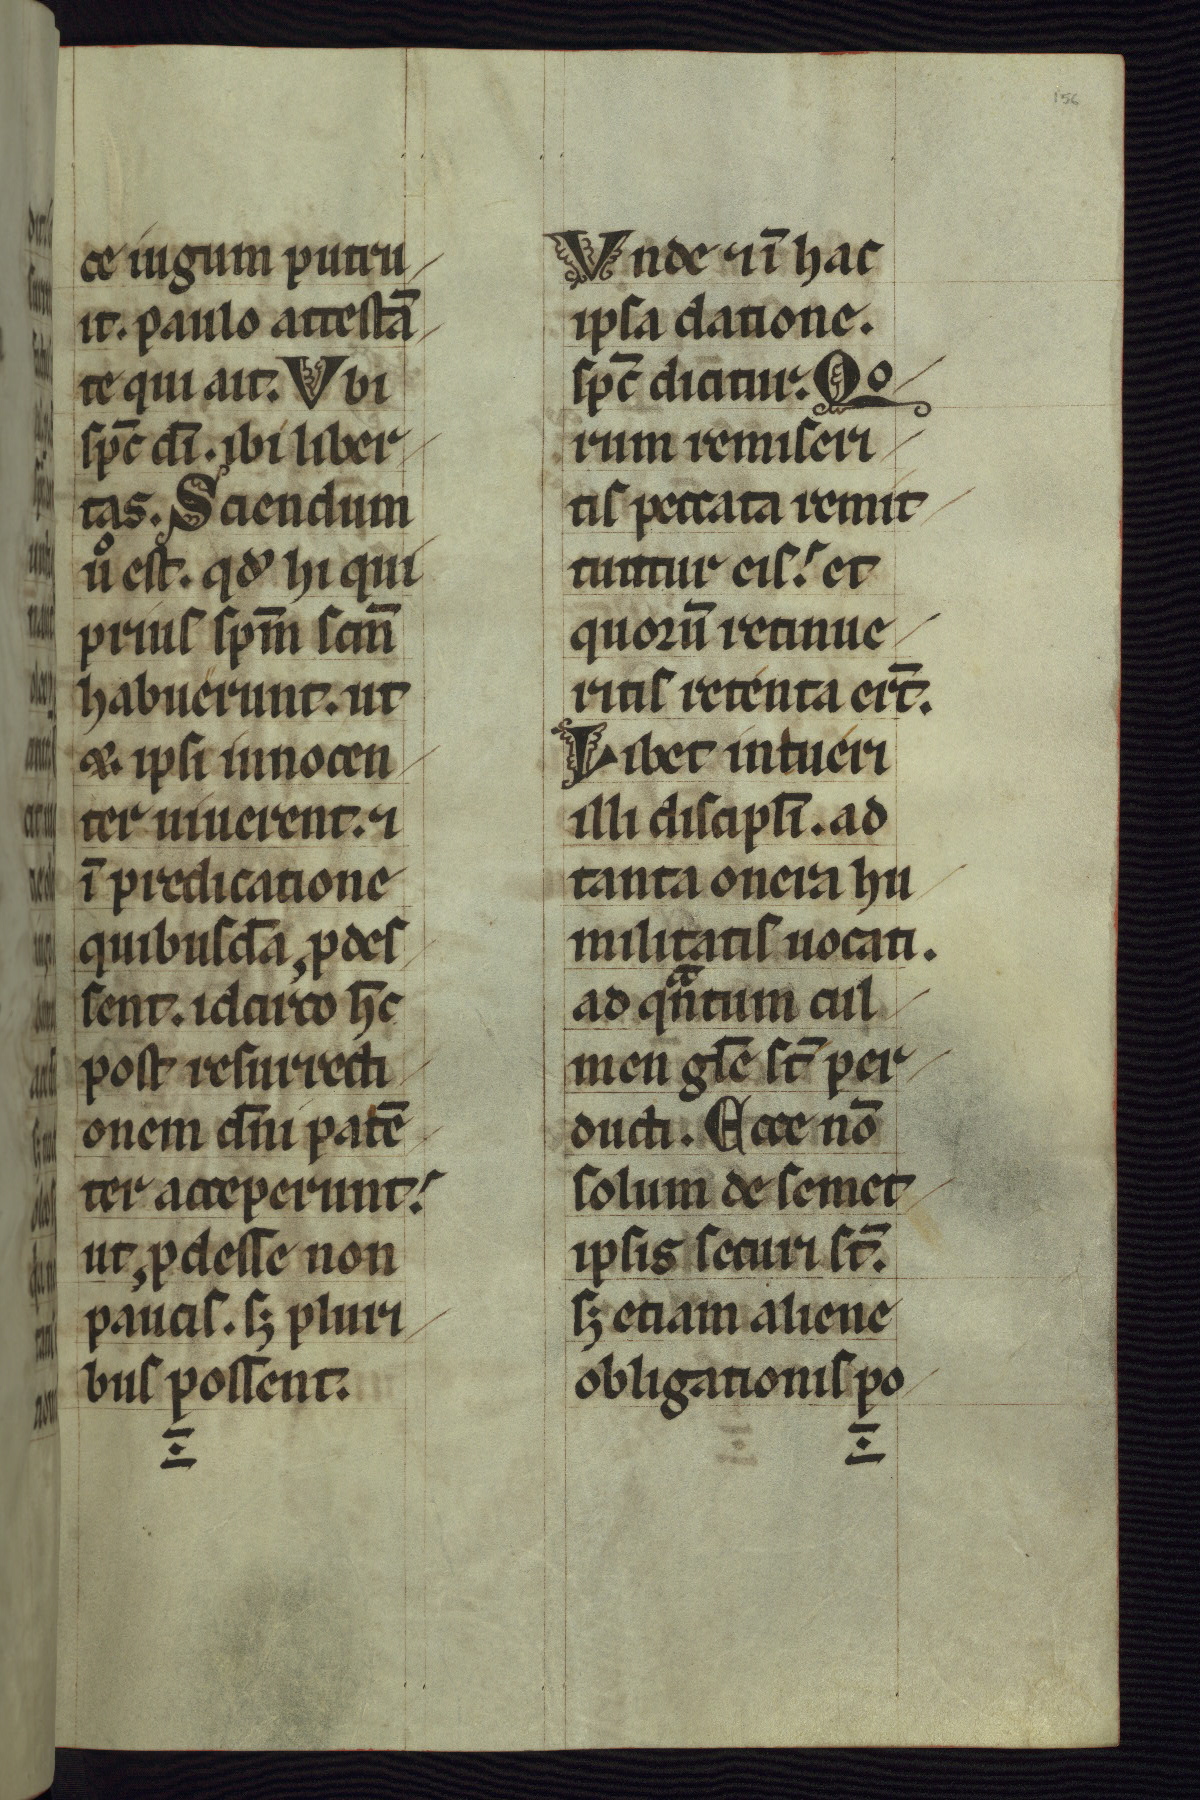 156
ce iugum putru
it. paulo attestā
te qui ait. Vbi
sp̄c dī. ibi liber
tas. Sciendum
uͦ est. qđ hi qui
prius sp̄m scīn
habuerunt. ut
&. ipsi innocen
ter uiuerent. ⁊
ī predicatione
quibusdā ꝓdes
sent. idcirco h̄c
post resurrecti
onem dn̄i patēn
ter acceperunt!
ut ꝓdesse non
paucis. sꝫ pluri
bus possent.
Vnde ⁊ ī hac
ipsa datione.
sp̄c dicitur. Qo
rum remiseri
tis peccata remit
tuntur eis! et
quorū retinue
ritis retenta er̄t.
Libet intueri
illi discipl̄i. ad
tanta onera hu
militatis uocati.
ad qͣntum cul
men gl̄e st̄ per
ducti. Ecce nō
solum de semet
ipsis securi st̄.
sꝫ etiam aliene
obligationis po